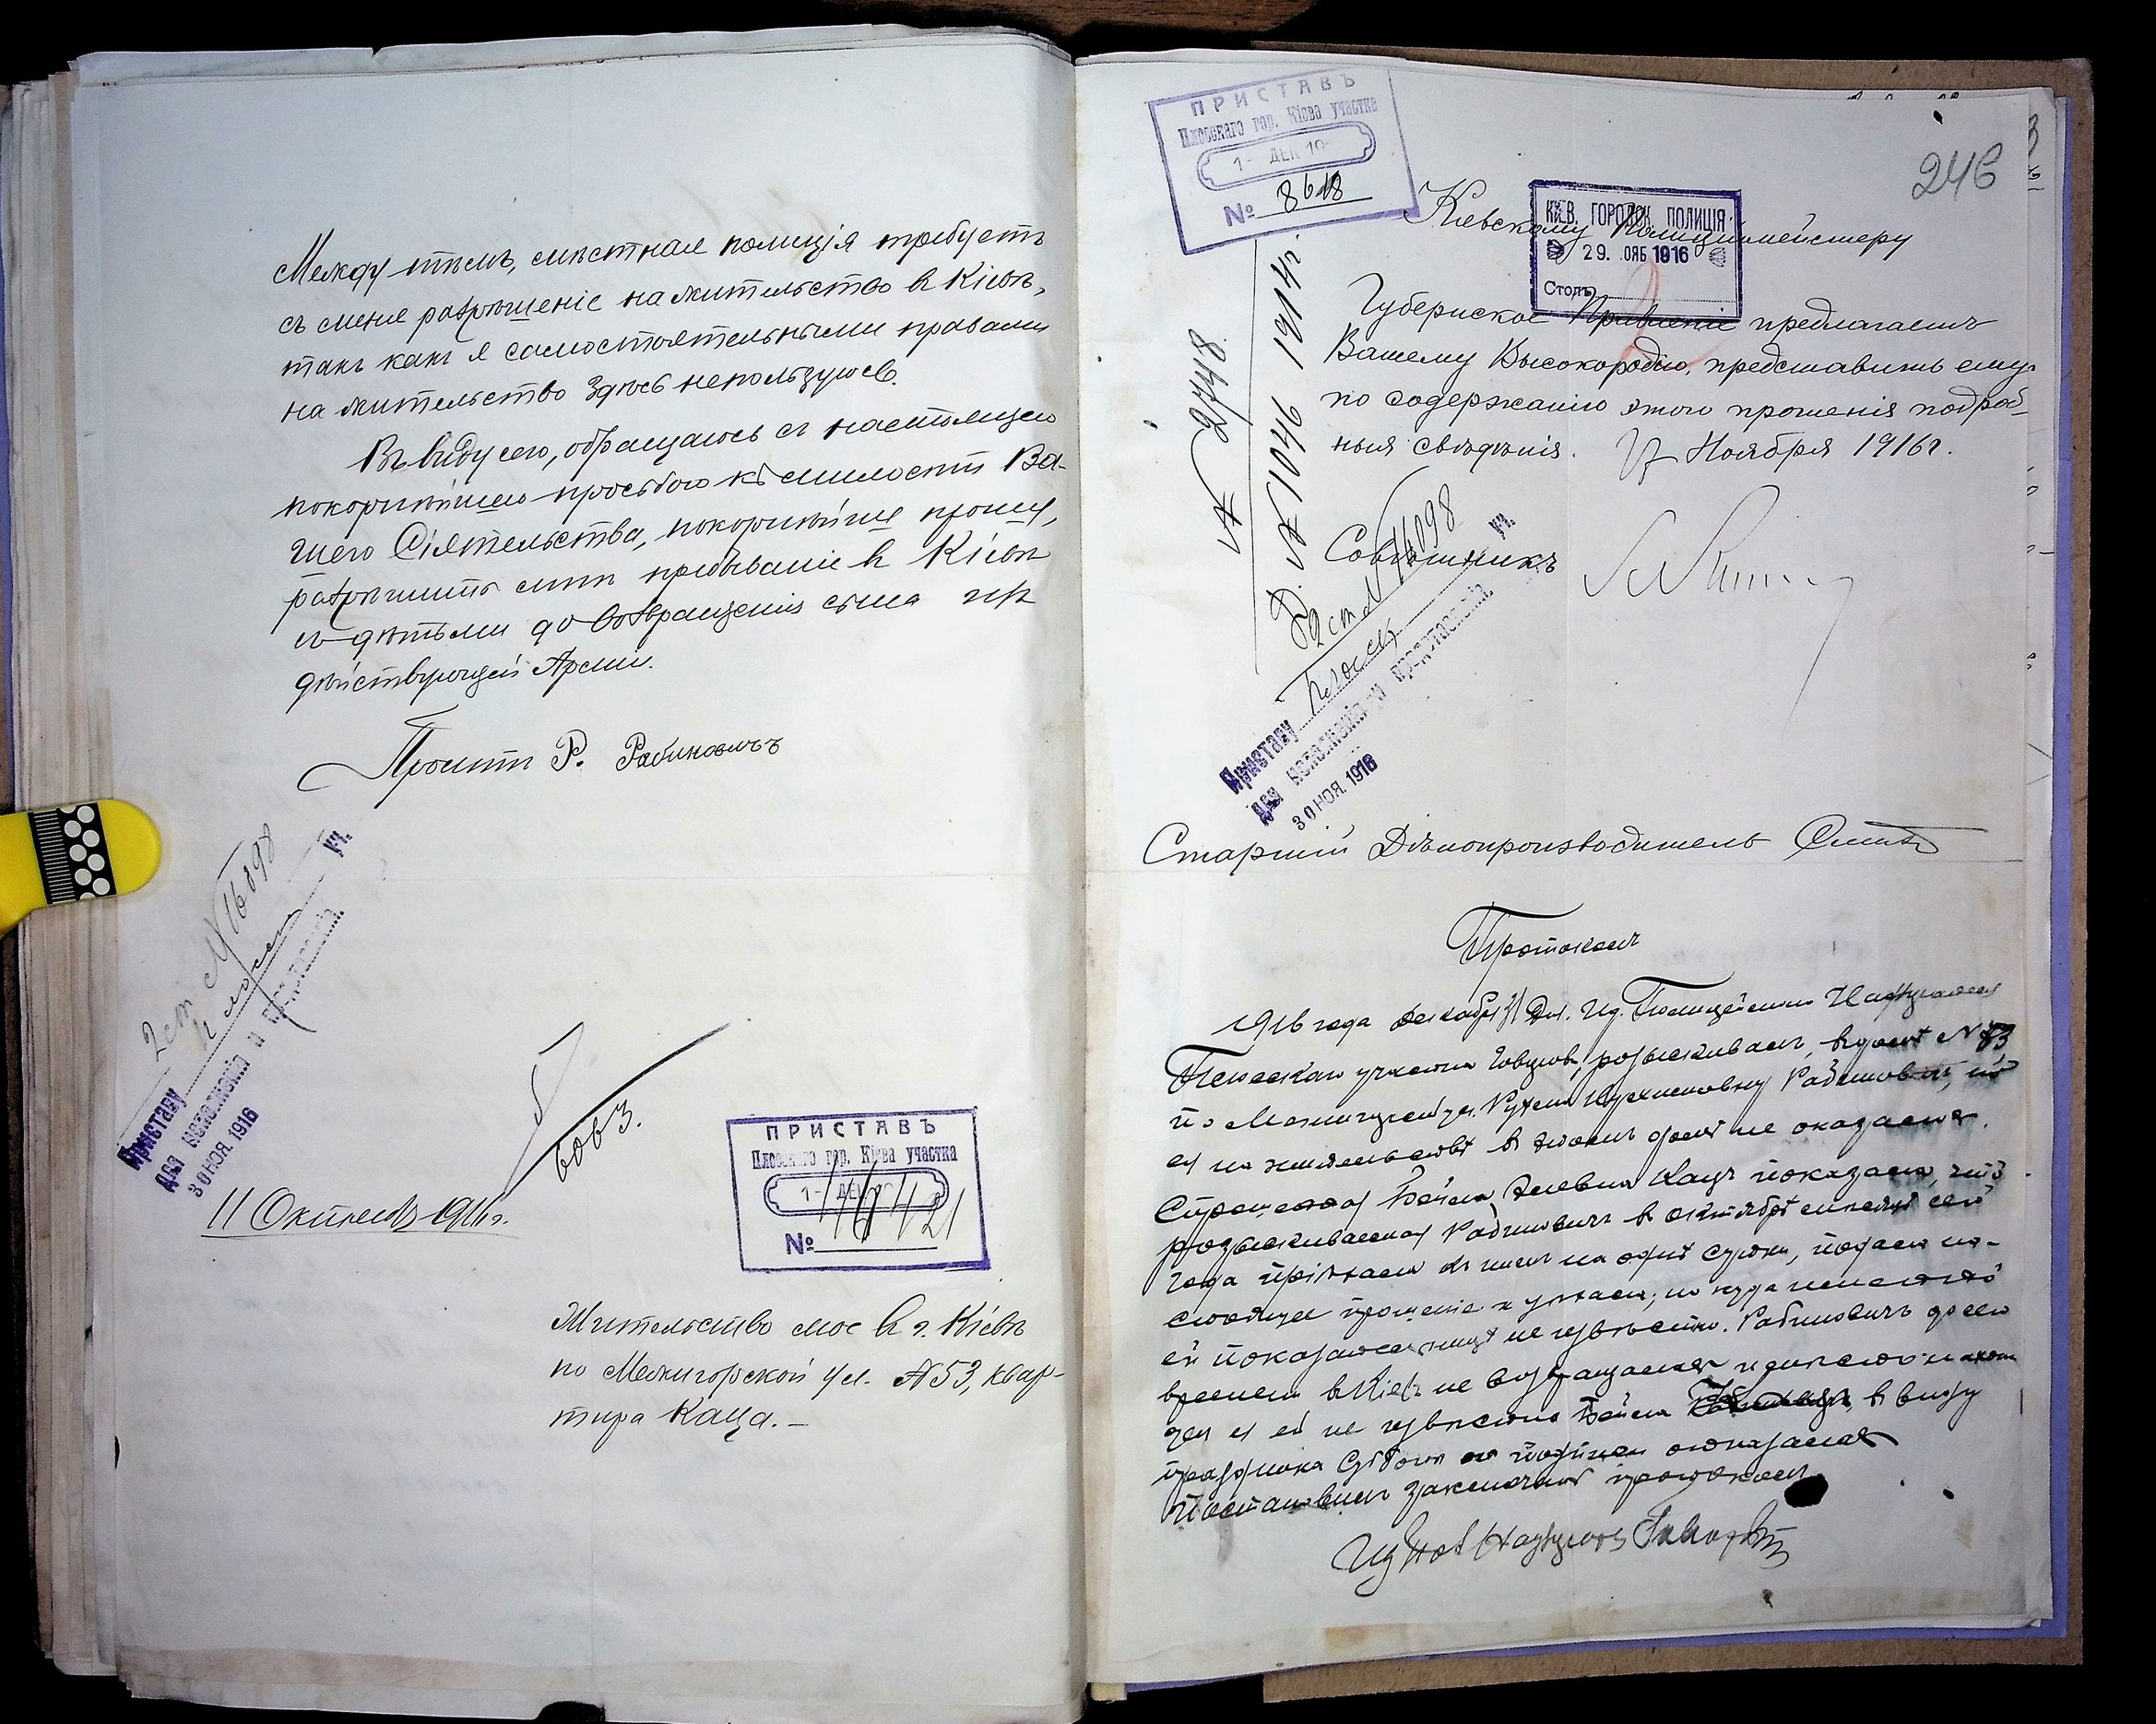 Между тѣмъ, мѣстная полиція требуетъ
съ меня разрѣшеніе на жительство в Кіевѣ,
такъ какъ я самостоятельными правами
на жительство здѣсь непользуюсь.
Въ виду сего, обращаюсь съ настоящею
покорнѣйшею просьбою къ милости Ва-
шего Сіятельства, покорнѣйше прошу,
разрѣшить мнѣ пребываніе в Кіевѣ
съ дѣтьми до возвращенія сына изъ
дѣйствующей Арміи.
Проситъ Р. Рабиновичъ
2 ст № 16098
Приставу Плосск уч.
для исполненія и
30 НОЯ. 1916
11 Октября 1916 г.
ПРИСТАВЪ
Плосскаго гор. Кіева участка
1- ДЕК
№
Жительство мое в г. Кіевѣ
по Межигорской ул. №53, квар-
тира Каца.-
ПРИСТАВЪ
Плосскаго гор. Кіева участка
1- ДЕК 19
№ 8618
246
Кіевскому Полиціймейстеру
КІЕВ. ГОРОДСК. ПОЛИЦІЯ
29. НОЯБ 1916
Столъ
Губернское Правленіе предлагаетъ
Вашему Высокородію, представить ему
по содержанію этого прошенія подроб-
ныя свѣдѣнія. 17 Ноября 1916 г.
№ 27448
Д. № 1046 1914 г.
Совѣтникъ
2 ст № 16098
Приставу Плосск уч.
для исполненія и
30 НОЯ. 1916
Старшій Дѣлопроизводитель
Протоколъ
1916 года Декабря Дня. Ид. Полицейскаго Надзирателя
Плосскаго участка розыскивалъ, в домѣ №53
по Межигорской ул. Рабиновичъ, но
на жительствѣ в этомъ домѣ не оказалась.
Спрошенная Бейла Кацъ показала, что
розыскиваемая Рабиновичъ в октябрѣ мѣсяцѣ сего
года пріѣхала къ нимъ на однѣ сутки, подала на-
стоящее прошеніе и уѣхала, но куда неизвѣстно
ей показательницѣ не извѣстно. Рабиновичъ до сего
времени в Кіевъ не возвращалась и
ея ей не извѣстно Бейла Кацъ, в виду
праздника Субботы отъ подписи отказалась
Постановилъ заключить протоколъ